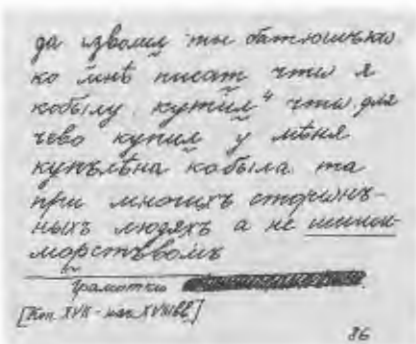 да изволил ты батюшъко
ко мнѣ писат что я
кобылу купил что для
чево купил у мѣня
купълѣна кобыла та
при многихъ сторонъ-
ныхъ людяхъ а не шиши-
морствомъ
Грамотки
[Кон. XVII - нач. XVIII вв.]
86